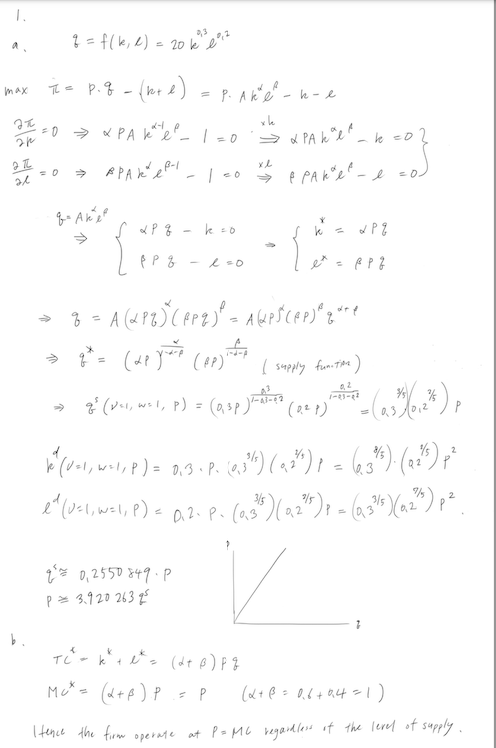 1.
a. q = f(k, l) = 20 k^0,3 l^0,2
max π = p·q − (k+l) = p·Ak^α l^β − k − l
∂π/∂k = 0 ⇒ αPAk^(α−1) l^β − 1 = 0 ⇒(×k) αPAk^α l^β − k = 0 }
∂π/∂l = 0 ⇒ βPAk^α l^(β−1) − 1 = 0 ⇒(×l) βPAk^α l^β − l = 0 }
q = Ak^α l^β ⇒ { αPq − k = 0 ⇒ { k* = αPq
{ βPq − l = 0 { l* = βPq
⇒ q = A(αPq)^α (βPq)^β = A(αP)^α (βP)^β q^(α+β)
⇒ q* = (αP)^(α/(1−α−β)) (βP)^(β/(1−α−β)) (supply function)
⇒ q^s (v=1, w=1, P) = (0,3P)^(0,3/(1−0,3−0,2)) (0,2P)^(0,2/(1−0,3−0,2)) = (0,3^(3/5))(0,2^(2/5)) P
k^d (v=1, w=1, P) = 0,3·P·(0,3^(3/5))(0,2^(2/5)) P = (0,3^(8/5))·(0,2^(2/5)) P^2
l^d (v=1, w=1, P) = 0,2·P·(0,3^(3/5))(0,2^(2/5)) P = (0,3^(3/5))(0,2^(7/5)) P^2.
P
q^s ≅ 0,2550849·P
P ≅ 3.920263 q^s
q
b.
TC* = k* + l* = (α+β) P q
MC* = (α+β) P = P (α+β = 0,6+0,4 = 1)
Hence the firm operate at P=MC regardless of the level of supply.